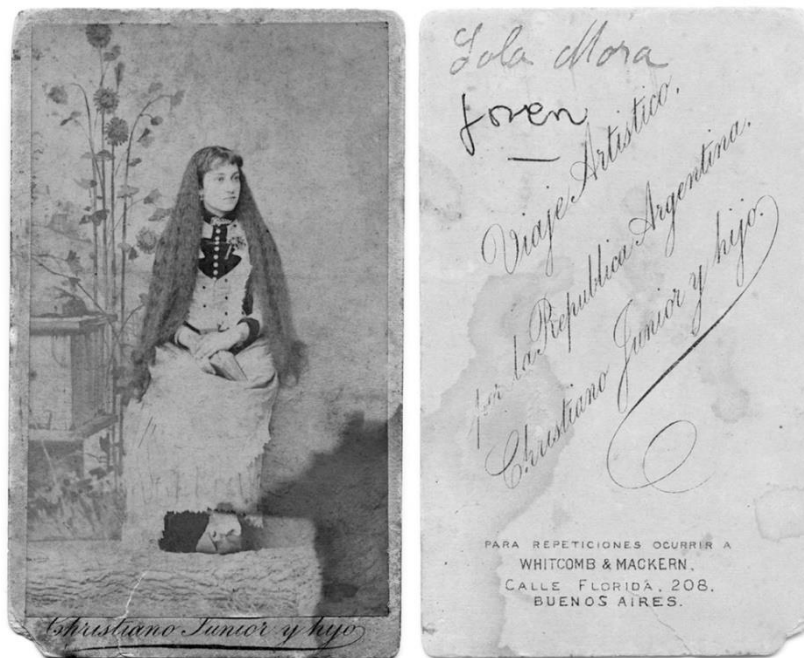 Christiano Junior y hijo
Lola Mora
Joven
Viaje Artistico.
por la Republica Argentina.
Christiano Junior y hijo.
PARA REPETICIONES OCURRIR A
WHITCOMB & MACKERN.
CALLE FLORIDA, 208,
BUENOS AIRES.